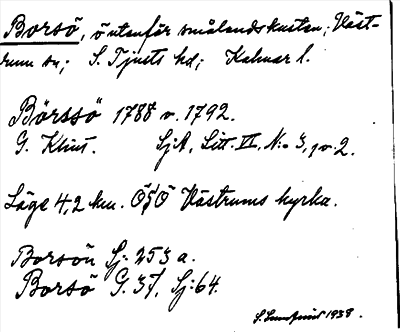 Borsö, ö utanför smålandskusten; Väst-
rum sn; S. Tjusts hd; Kalmar l.
Börssö 1788 o. 1792.
G. Klint. SjA, Litt. VI, N:o 3, 2.
Läge 4,2 km. ÖSÖ Västrums kyrka.
Borsön Sj. 253 a.
Borsö G. 37, Sj:64.
1938.